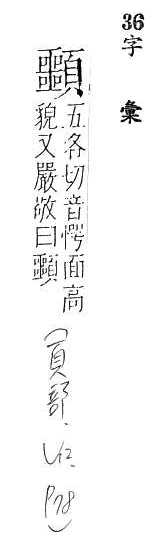 36
字彙
五各切音愕面高
貌又嚴敬曰
(頁部. P78)